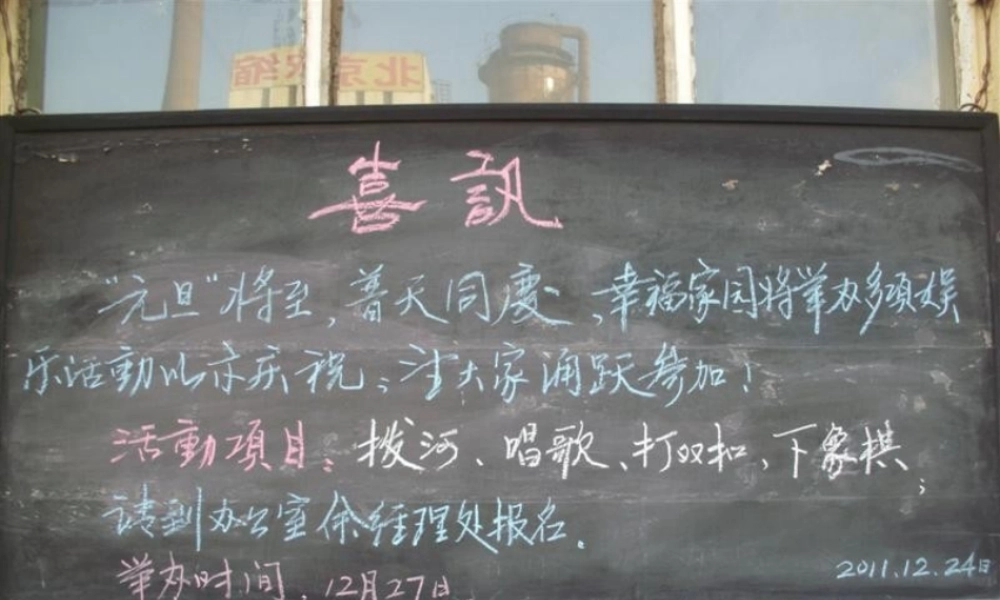 北京浓缩
喜訊
"元旦"将至,普天同慶、幸福家园将举办多项娱
乐活動以示庆祝,望大家涌跃参加!
活動項目:拔河、唱歌、打双扣、下象棋;
请到办公室余经理处报名.
举办时间:12月27日
2011.12.24日